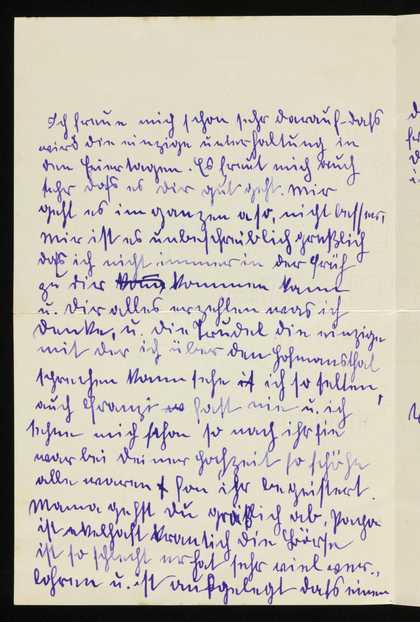 Ich freue mich schon sehr darauf dass
wird die einzige unterhaltung in
den Feiertagen. Es freut mich auch
sehr dass es dir gut geht. Mir
geht es im ganzen aso, nicht besser
Mir ist es unbeschreiblich grässlich
dass ich nicht immer in der früh
zu dir kommen kann
u. dir alles erzehlen was ich
denke, u. die Trudel die einzige
mit der ich über den Hofmansthal
sprechen kann sehe ich so selten,
auch Franzi fast nie u. ich
sehne mich schon so nach ihr sie
war bei deiner Hochzeit so schöhn
alle waren fon ihr begeistert.
Mama gehst du gräslich ab. Papa
ist ekelhaft grantich die Börse
ist so schlecht er hat sehr viel ver-
lohren u. ist aufgelegt dass einem